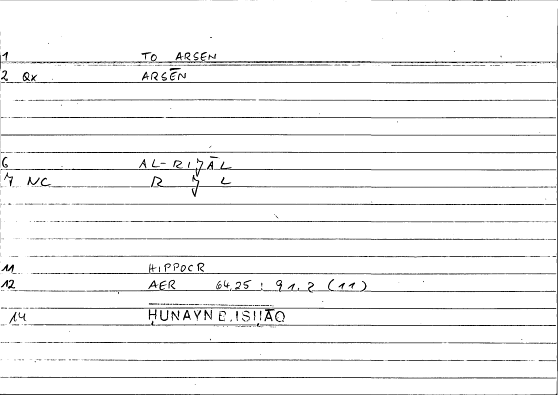 1 TO ARSEN
2 Qx ARSĒN
6 AL-RIǦĀL
7 NC R Ǧ L
11 HIPPOCR
12 AER 64.25 : 91.2 (11)
14 ḤUNAYN B. ISḤĀQ